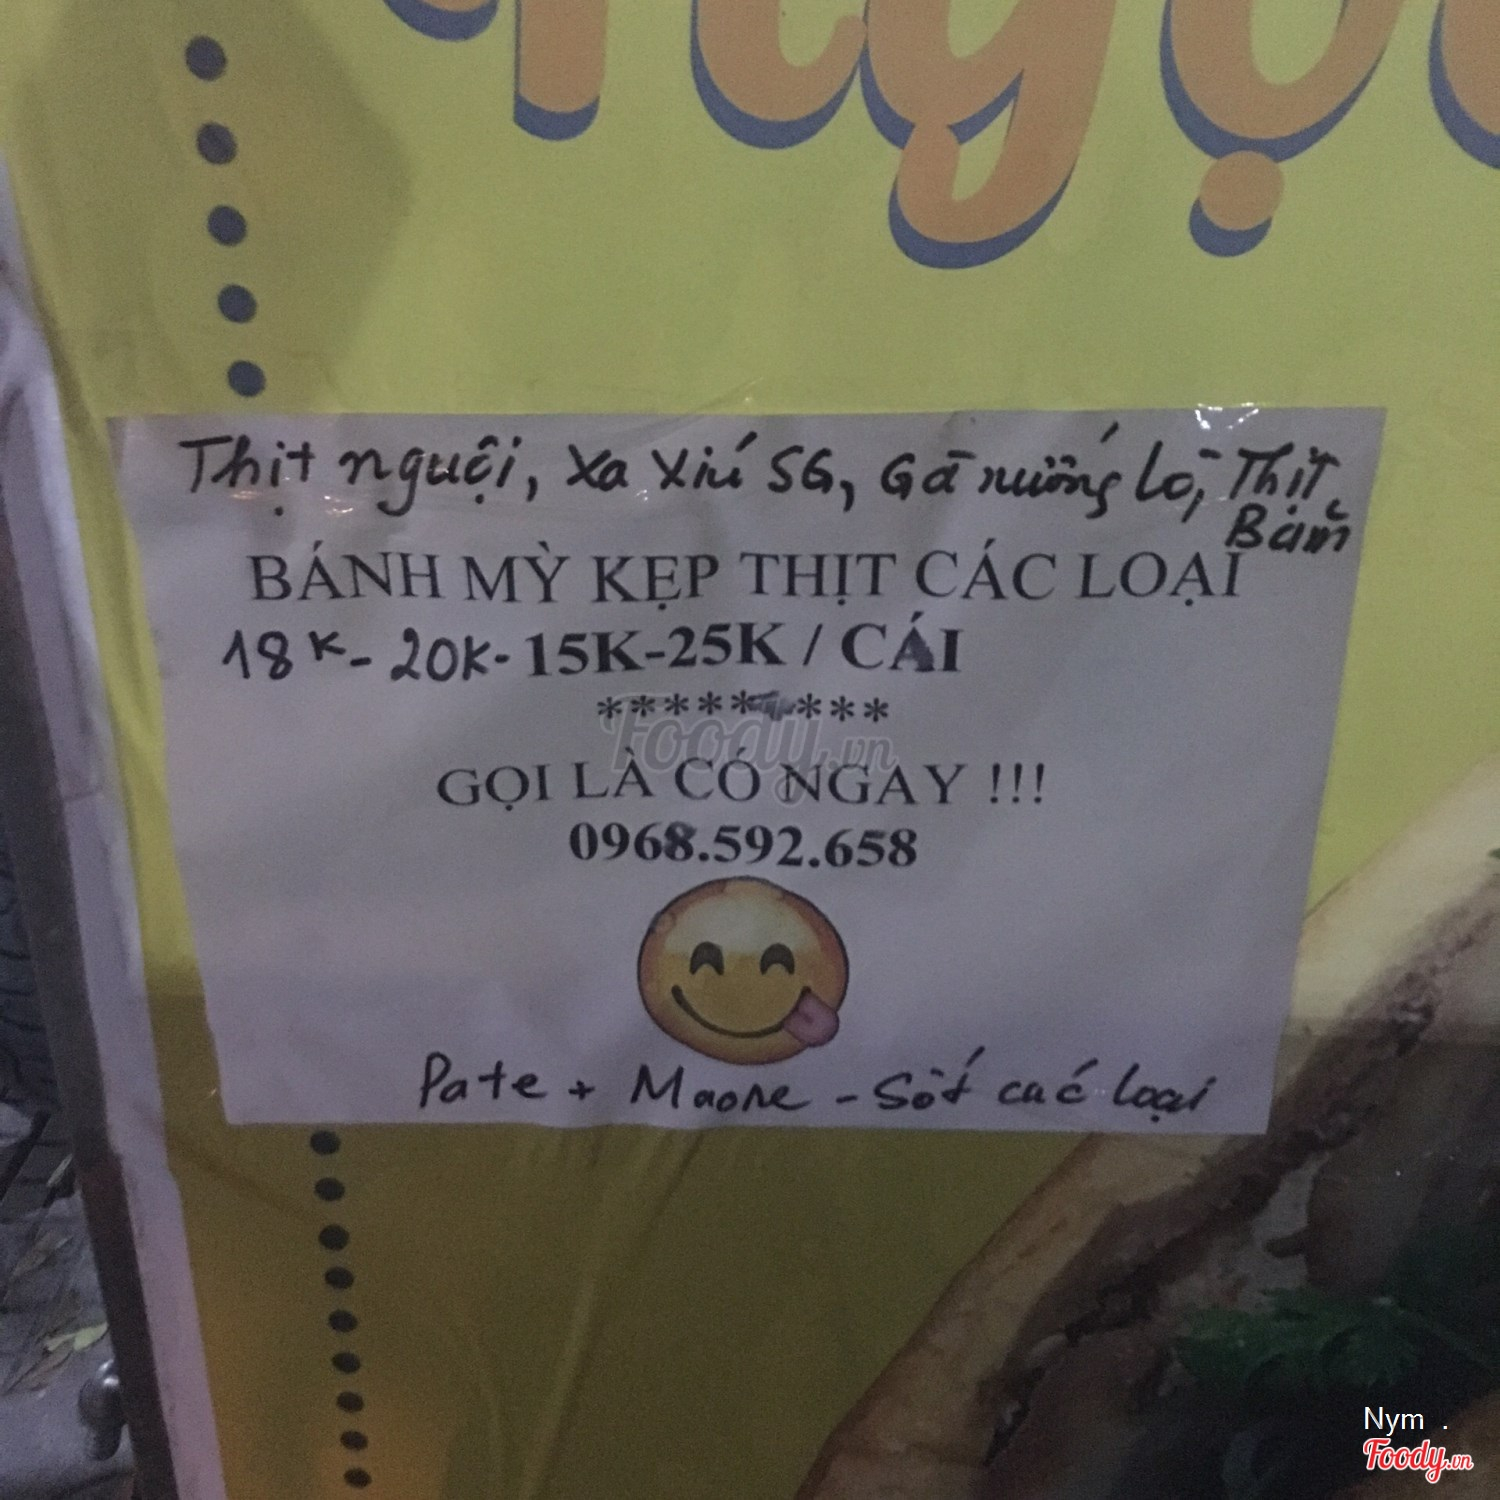 Thịt nguội, Xa Xiú SG, Gà nướng lò, Thịt
Băm
BÁNH MỲ KẸP THỊT CÁC LOẠI
18K- 20K- 15K-25K / CÁI
GỌI LÀ CÓ NGAY !!!
0968.592.658
Pate + Maone - Sốt các loại
Foody.vn
Nym .
Foody.vn